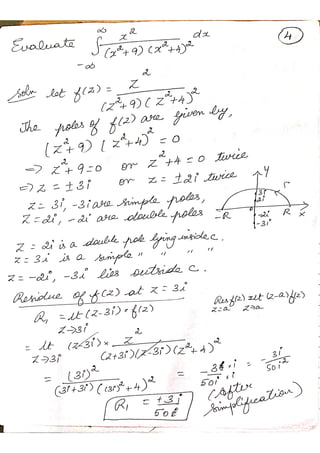 ④
Evaluate ∫_{-∞}^{∞} x²/((x²+9)(x²+4)²) dx
Soln let f(z) = z²/((z²+9)(z²+4)²)
The poles of f(z) are given by,
(z²+9)(z²+4)² = 0
=> z²+9=0 or z²+4=0 twice
=> z = ±3i or z = ±2i twice
z = 3i, -3i are simple poles,
z = 2i, -2i are double poles
Y
Γ
3i
2i
-R
-2i
-3i
R
X
z = 2i is a double pole lying inside c.
z = 3i is a simple " " " "
z = -2i, -3i lies outside c.
Residue of f(z) at z = 3i
R₁ = lt_{z→3i} (z-3i)×f(z)
Res f(z) = lt_{z→a} (z-a)f(z)
z=a
= lt_{z→3i} (z-3i) × z²/((z+3i)(z-3i)(z²+4)²)
= (3i)²/((3i+3i)((3i)²+4)²) = -3·i/(50i·i) = -3i/(50i²)
(After simplification)
R₁ = +3i/50